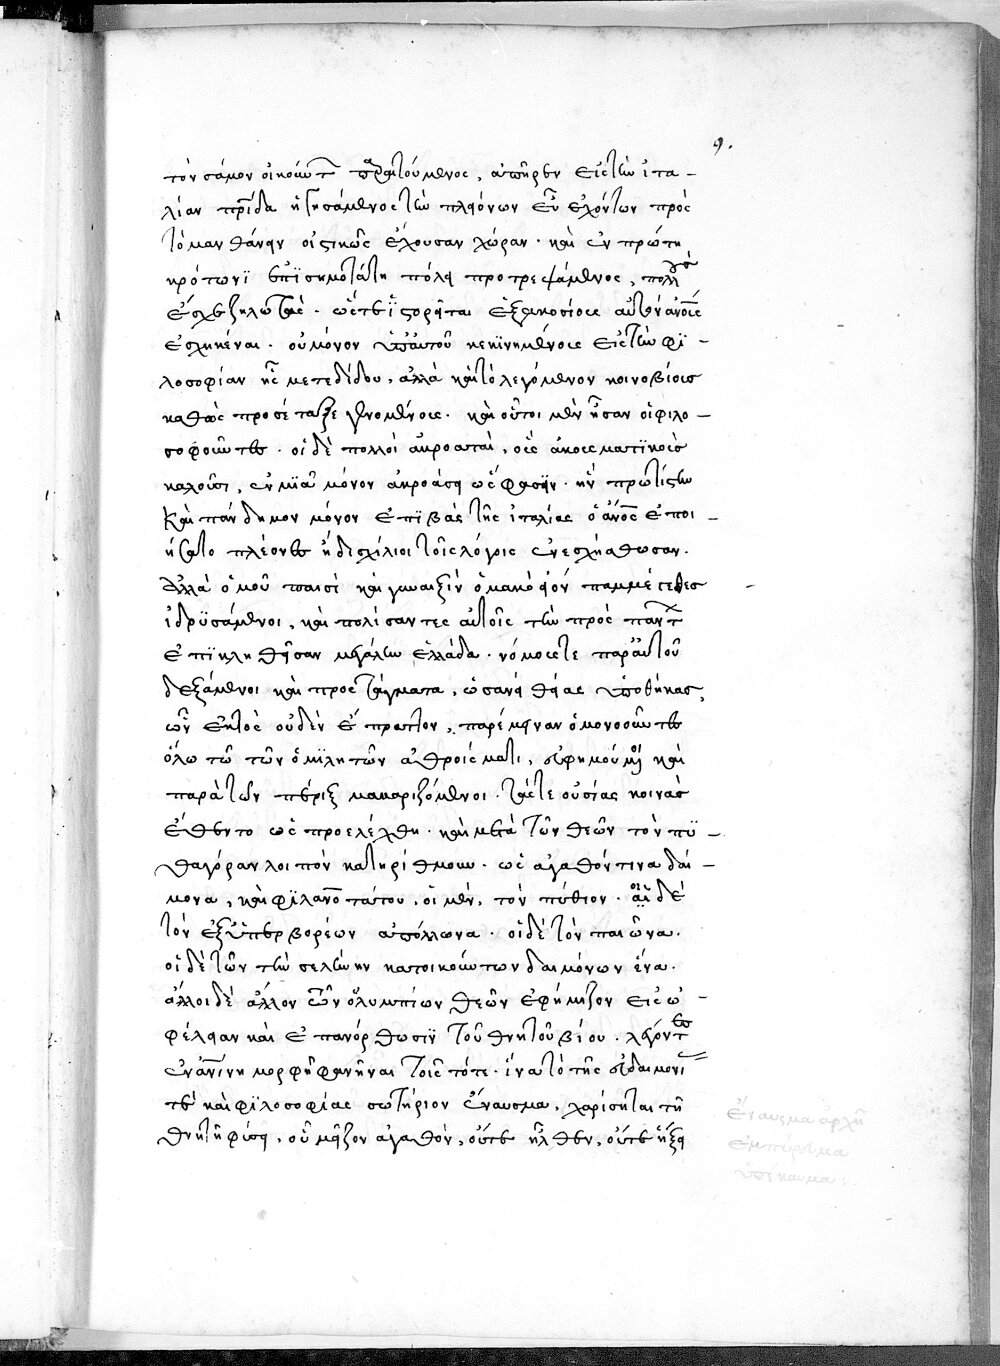 9.
τὸν σάμον οἰκούντ παραιτούμενος, ἀπῆρεν εἰς τὴν ἰτα-
λίαν πρίδα ἡγησάμενος τὴν πλειόνων εὖ ἐχόντων πρὸς
τὸ μανθάνειν οἰστικῶς ἔχουσαν χώραν. καὶ ἐν πρώτη
κρότωνϊ ἐπϊσημοτάτη πόλει προτρεψάμενος, πολλοὺς
ἔσχε ζηλωτάς. ὥστε ἱστορεῖται ἑξακοσίους αὐτὸν ἀνοις
ἐσχηκέναι. οὐ μόνον ὑπ' αὐτοῦ κεκϊνημένους εἰς τὴν φϊ-
λοσοφίαν ἧς μετεδίδου, ἀλλὰ καὶ τὸ λεγόμενον κοινοβίοις
καθὼς προσέταξε γενομένους. καὶ οὗτοι μὲν ἦσαν οἱ φιλο-
σοφοῦντες. οἱ δὲ πολλοὶ ἀκροαταὶ, οὓς ἀκουσματϊκοὺς
καλοῦσι, ἐν μϊᾶ μόνον ἀκροάσει ὥς φασϊν. ἣν πρωτίστην
καὶ πάνδημον μόνον ἐπϊβὰς τῆς ἰταλίας ὁ ἄνος ἐποι-
ήσατο πλέονες ἢ δισχίλιοι τοῖς λόγοις ἐνεσχέθησαν.
ἀλλὰ ὁμοῦ παισὶ καὶ γυναιξὶν ὁμακόϊόν παμμέγεθες
ἱδρϋσάμενοι, καὶ πολίσαντες αὐτοῖς τὴν πρὸς παντ
ἐπϊκληθεῖσαν μεγάλην ἑλλάδα. νόμους τε παρ' αὐτοῦ
δεξάμενοι καὶ προστάγματα, ὡσανεὶ θείας ὑποθήκας,
ὧν ἐκτὸς οὐδὲν ἔπραττον, παρέμειναν ὁμονοοῦντες
ὅλω τῶ τῶν ὁμϊλητῶν ἀθροίσματι, εὐφημούμενοι καὶ
παρὰ τῶν πέριξ μακαριζόμενοι. τάς τε οὐσίας κοινὰς
ἔθεντο ὡς προελέχθη. καὶ μετὰ τῶν θεῶν τὸν πϋ-
θαγόραν λοιπὸν κατηρίθμουν. ὡς ἀγαθόν τινα δαί-
μονα, καὶ φϊλανότατον, οἱ μὲν, τὸν πύθιον. οἱ δὲ
τὸν ἐξ ὑπερβορέων ἀπόλλωνα. οἱ δὲ τὸν παιῶνα.
οἱ δὲ τῶν τὴν σελήνην κατοικούντων δαιμόνων ἕνα.
ἄλλοι δὲ ἄλλον τῶν ὀλυμπίων θεῶν ἐφήμιζον εἰς ὠ-
φέλειαν καὶ ἐπανόρθωσϊν τοῦ θνητοῦ βίου. λέγοντες
ἐν ἀνίνη μορφῆ φανῆναι τοῖς τότε. ἵνα τὸ τῆς εὐδαιμονί
τε καὶ φϊλοσοφίας σωτήριον ἔναυσμα, χαρίσηται τῆ
θνητῆ φύσει, οὗ μεῖζον ἀγαθὸν, οὔτε ἦλθεν, οὔτε ἥξει
ἔναυσμα ἀρχὴ
ἐμπύρευμα
ὑπέκκαυμα